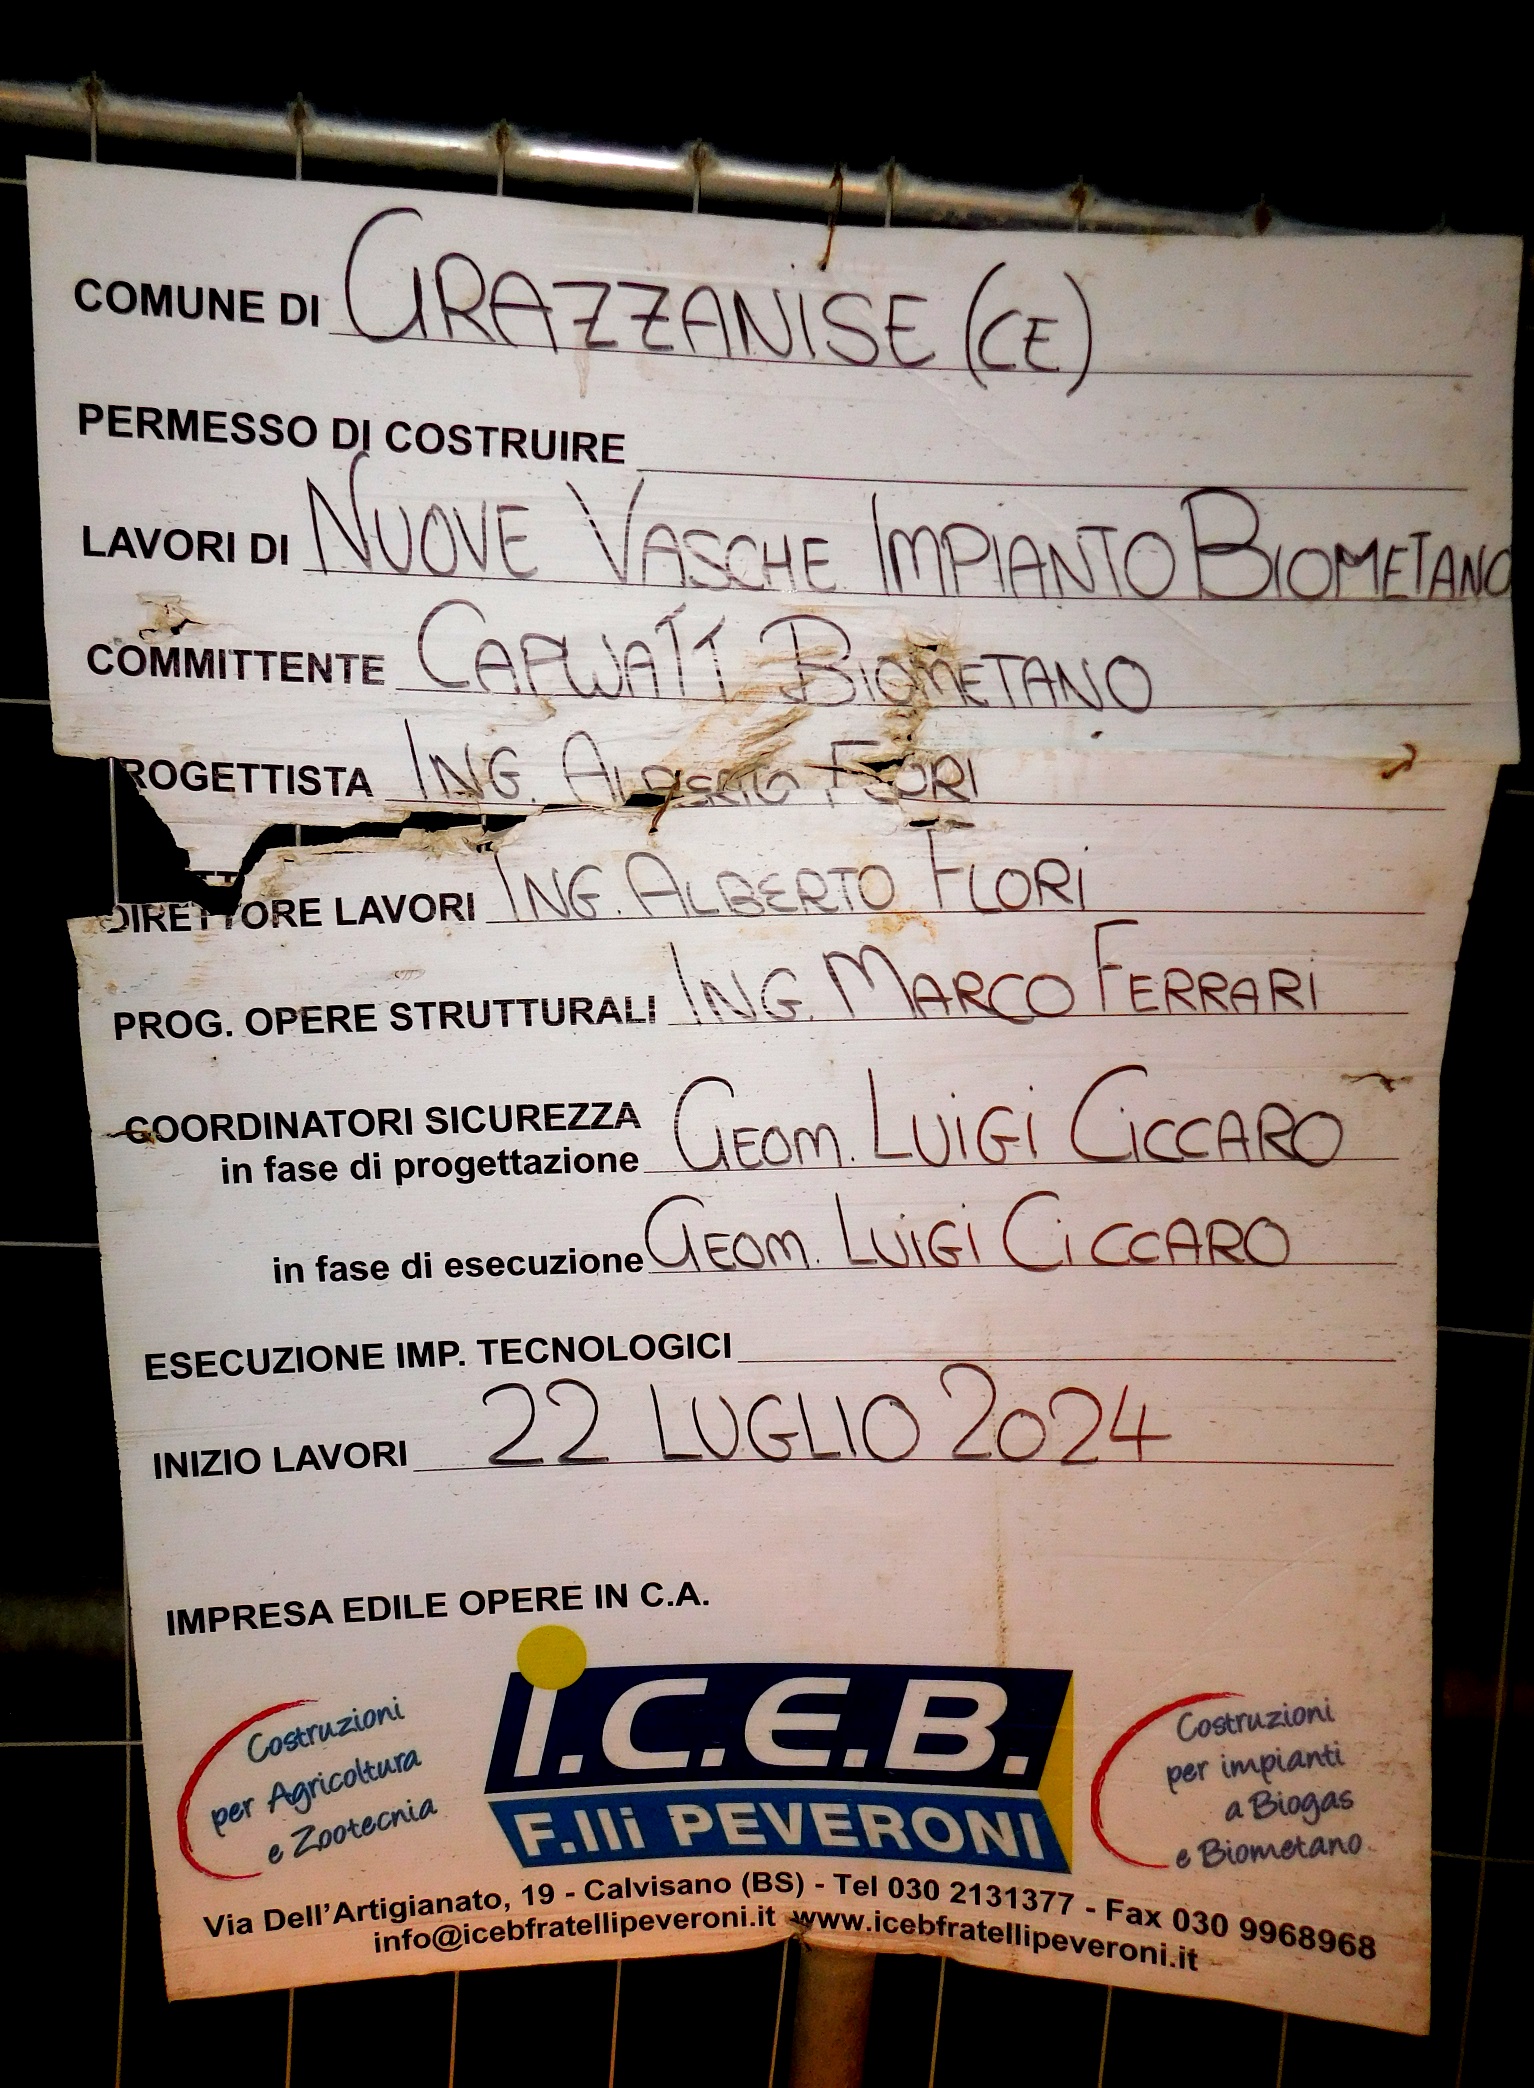 COMUNE DI GRAZZANISE (CE)
PERMESSO DI COSTRUIRE
LAVORI DI NUOVE VASCHE IMPIANTO BIOMETANO
COMMITTENTE CAPWATT BIOMETANO
ROGETTISTA ING. ALBERTO FLORI
DIRETTORE LAVORI ING. ALBERTO FLORI
PROG. OPERE STRUTTURALI ING. MARCO FERRARI
COORDINATORI SICUREZZA
in fase di progettazione GEOM. LUIGI CICCARO
in fase di esecuzione GEOM. LUIGI CICCARO
ESECUZIONE IMP. TECNOLOGICI
INIZIO LAVORI 22 LUGLIO 2024
IMPRESA EDILE OPERE IN C.A.
Costruzioni
per Agricoltura
e Zootecnia
i.C.E.B.
F.lli PEVERONI
Costruzioni
per impianti
a Biogas
e Biometano
Via Dell'Artigianato, 19 - Calvisano (BS) - Tel 030 2131377 - Fax 030 9968968
info@icebfratellipeveroni.it www.icebfratellipeveroni.it